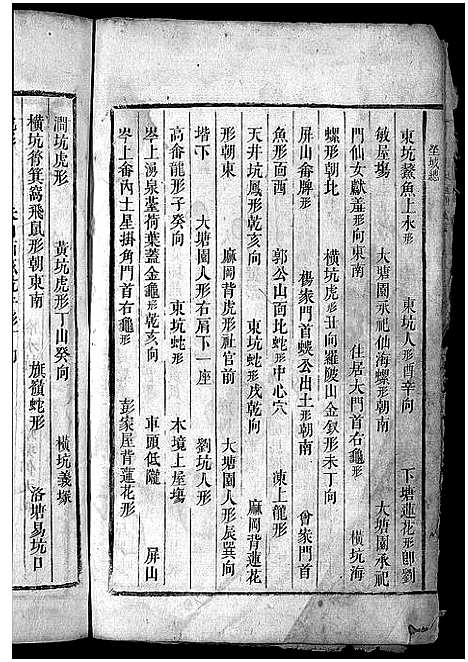 塋域總
東坑鰲魚上水形　東坑人形酉辛向　下塘蓮花形卽劉
敏屋塲　大塘園承祀仙海螺形朝南　大塘園承祀
門仙女獻羞形向東南　住居大門首右龜形　橫坑海
螺形朝北　橫坑虎形丑向羅陂山金釵形未丁向
屏山畬牌形　楊家門首蜈公出土形朝南　曾家門首
魚形面酉　郭公山面比蛇形中心穴　涷上龍形
天井坑鳳形乾亥向　東坑蛇形戌乾向　麻岡背蓮花
形朝東　麻岡背虎形社官前　大塘園人形辰巽向
堦下　大塘園人形右肩下一座　劉坑人形
高畬龍形子癸向　東坑蛇形　木境上屋塲
岺上湯泉荎荷葉蓋金龜形乾亥向　車頭低隴　屏山
岺上畬內土星掛角門首右龜形　彭家屋背蓮花形
澗坑虎形　黃坑虎形丁山癸向　橫坑義塚
橫坑筲箕窩飛鼠形朝東南　旗嶺蛇形　洛塘易坑口